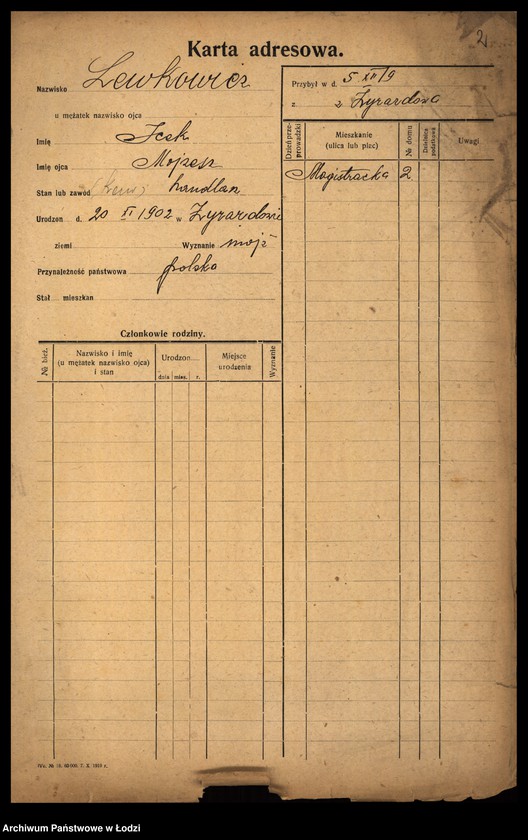 21
Karta adresowa.
Nazwisko Lewkowicz
u mężatek nazwisko ojca
Imię Icek
Imię ojca Mojżesz
Stan lub zawód handlarz
Urodzon d. 20 XI 1902 w Żyrardowie
ziemi Wyznanie mojż
Przynależność państwowa polska
Stał. mieszkan
Przybył w d. 5 XII 19
z z Żyrardowa
Dzień przeprowadzki
Mieszkanie
(ulica lub plac)
№ domu
Dzielnica
podatkowa
Uwagi
Magistracka 2
Członkowie rodziny.
№ bież.
Nazwisko i imię
(u mężatek nazwisko ojca)
i stan
Urodzon
dnia mies. r.
Miejsce
urodzenia
Wyznanie
Archiwum Państwowe w Łodzi